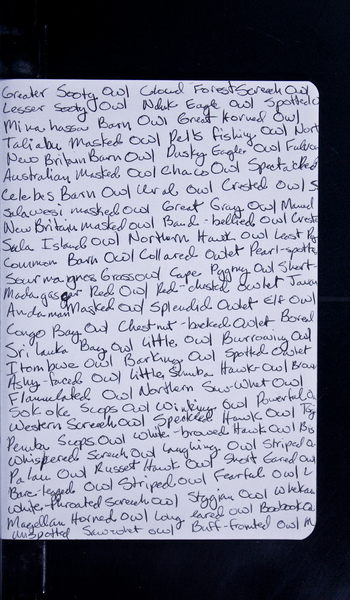 Greater Sooty Owl Cloud Forest Screech Owl
Lesser Sooty Owl Nduk Eagle Owl Spotted O
Minahassa Barn Owl Great Horned Owl
Taliabu Masked Owl Pel's Fishing Owl Nort
New Britain Barn Owl Dusky Eagle Owl
Australian Masked Owl Chaco Owl Spectacled
Celebes Barn Owl Ural Owl Crested Owl S
Sulawesi masked Owl Great Gray Owl
New Britain Masked owl Band-bellied Owl Creste
Sula Island Owl Northern Hawk Owl Least Py
Common Barn Owl Collared Owlet Pearl-spotte
Sourmagnes Grass owl Cape Pygmy Owl Short-
Madagascar Red Owl Red-chested Owlet Javan
Andaman Masked Owl Splendid Owlet Elf Owl
Congo Bay Owl Chestnut-backed Owlet Boreal
Sri Lanka Bay Owl Little Owl Burrowing Owl
Itombwe Owl Barking Owl Spotted Owlet
Ashy-faced Owl Little Sumba Hawk-Owl
Flamulated Owl Northern Saw-Whet Owl
Sokoke Scops Owl Winking Owl Powerful O
Western Screech Owl Speckled Hawk Owl
Pemba Scops Owl White-browed Hawk Owl Bis
Whispered Screech Owl Laughing Owl Striped O
Palau Owl Russet Hawk Owl Short Eared Ow
Bare-legged Owl Striped Owl Fearful Owl
White-throated Screech Owl Stygian Owl
Magellan Horned Owl Long eared Owl Boobook O
Unspotted Saw-whet owl Buff-fronted Owl M